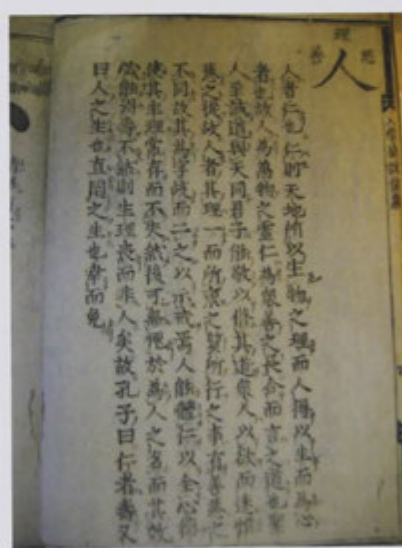 理
惡 善
人
人者仁也仁則天地所以生物之理而人得以生而爲心
者也故人爲萬物之靈仁爲衆善之長合而言之道也聖
人至誠道與天同君子能敬以修其道衆人以欲而迷惟
惡之從故人者其理一而所稟之質所行之事有善惡之
不同故其爲字岐而二之以示戒焉人能體仁以全心德
使其生理常存而不失然後可無愧於爲人之名而其效
必能得壽不然則生理喪而非人矣故孔子曰仁者壽又
曰人之生也直罔之生也幸而免